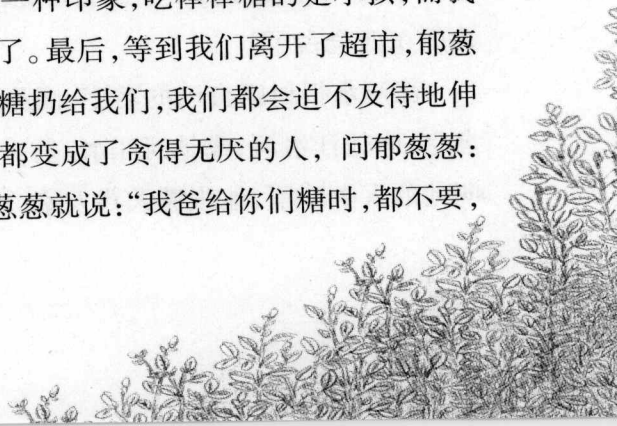 一种印象,吃棒棒糖的是小孩,而我
了。最后,等到我们离开了超市,郁葱
糖扔给我们,我们都会迫不及待地伸
都变成了贪得无厌的人,问郁葱葱:
葱葱就说:“我爸给你们糖时,都不要,